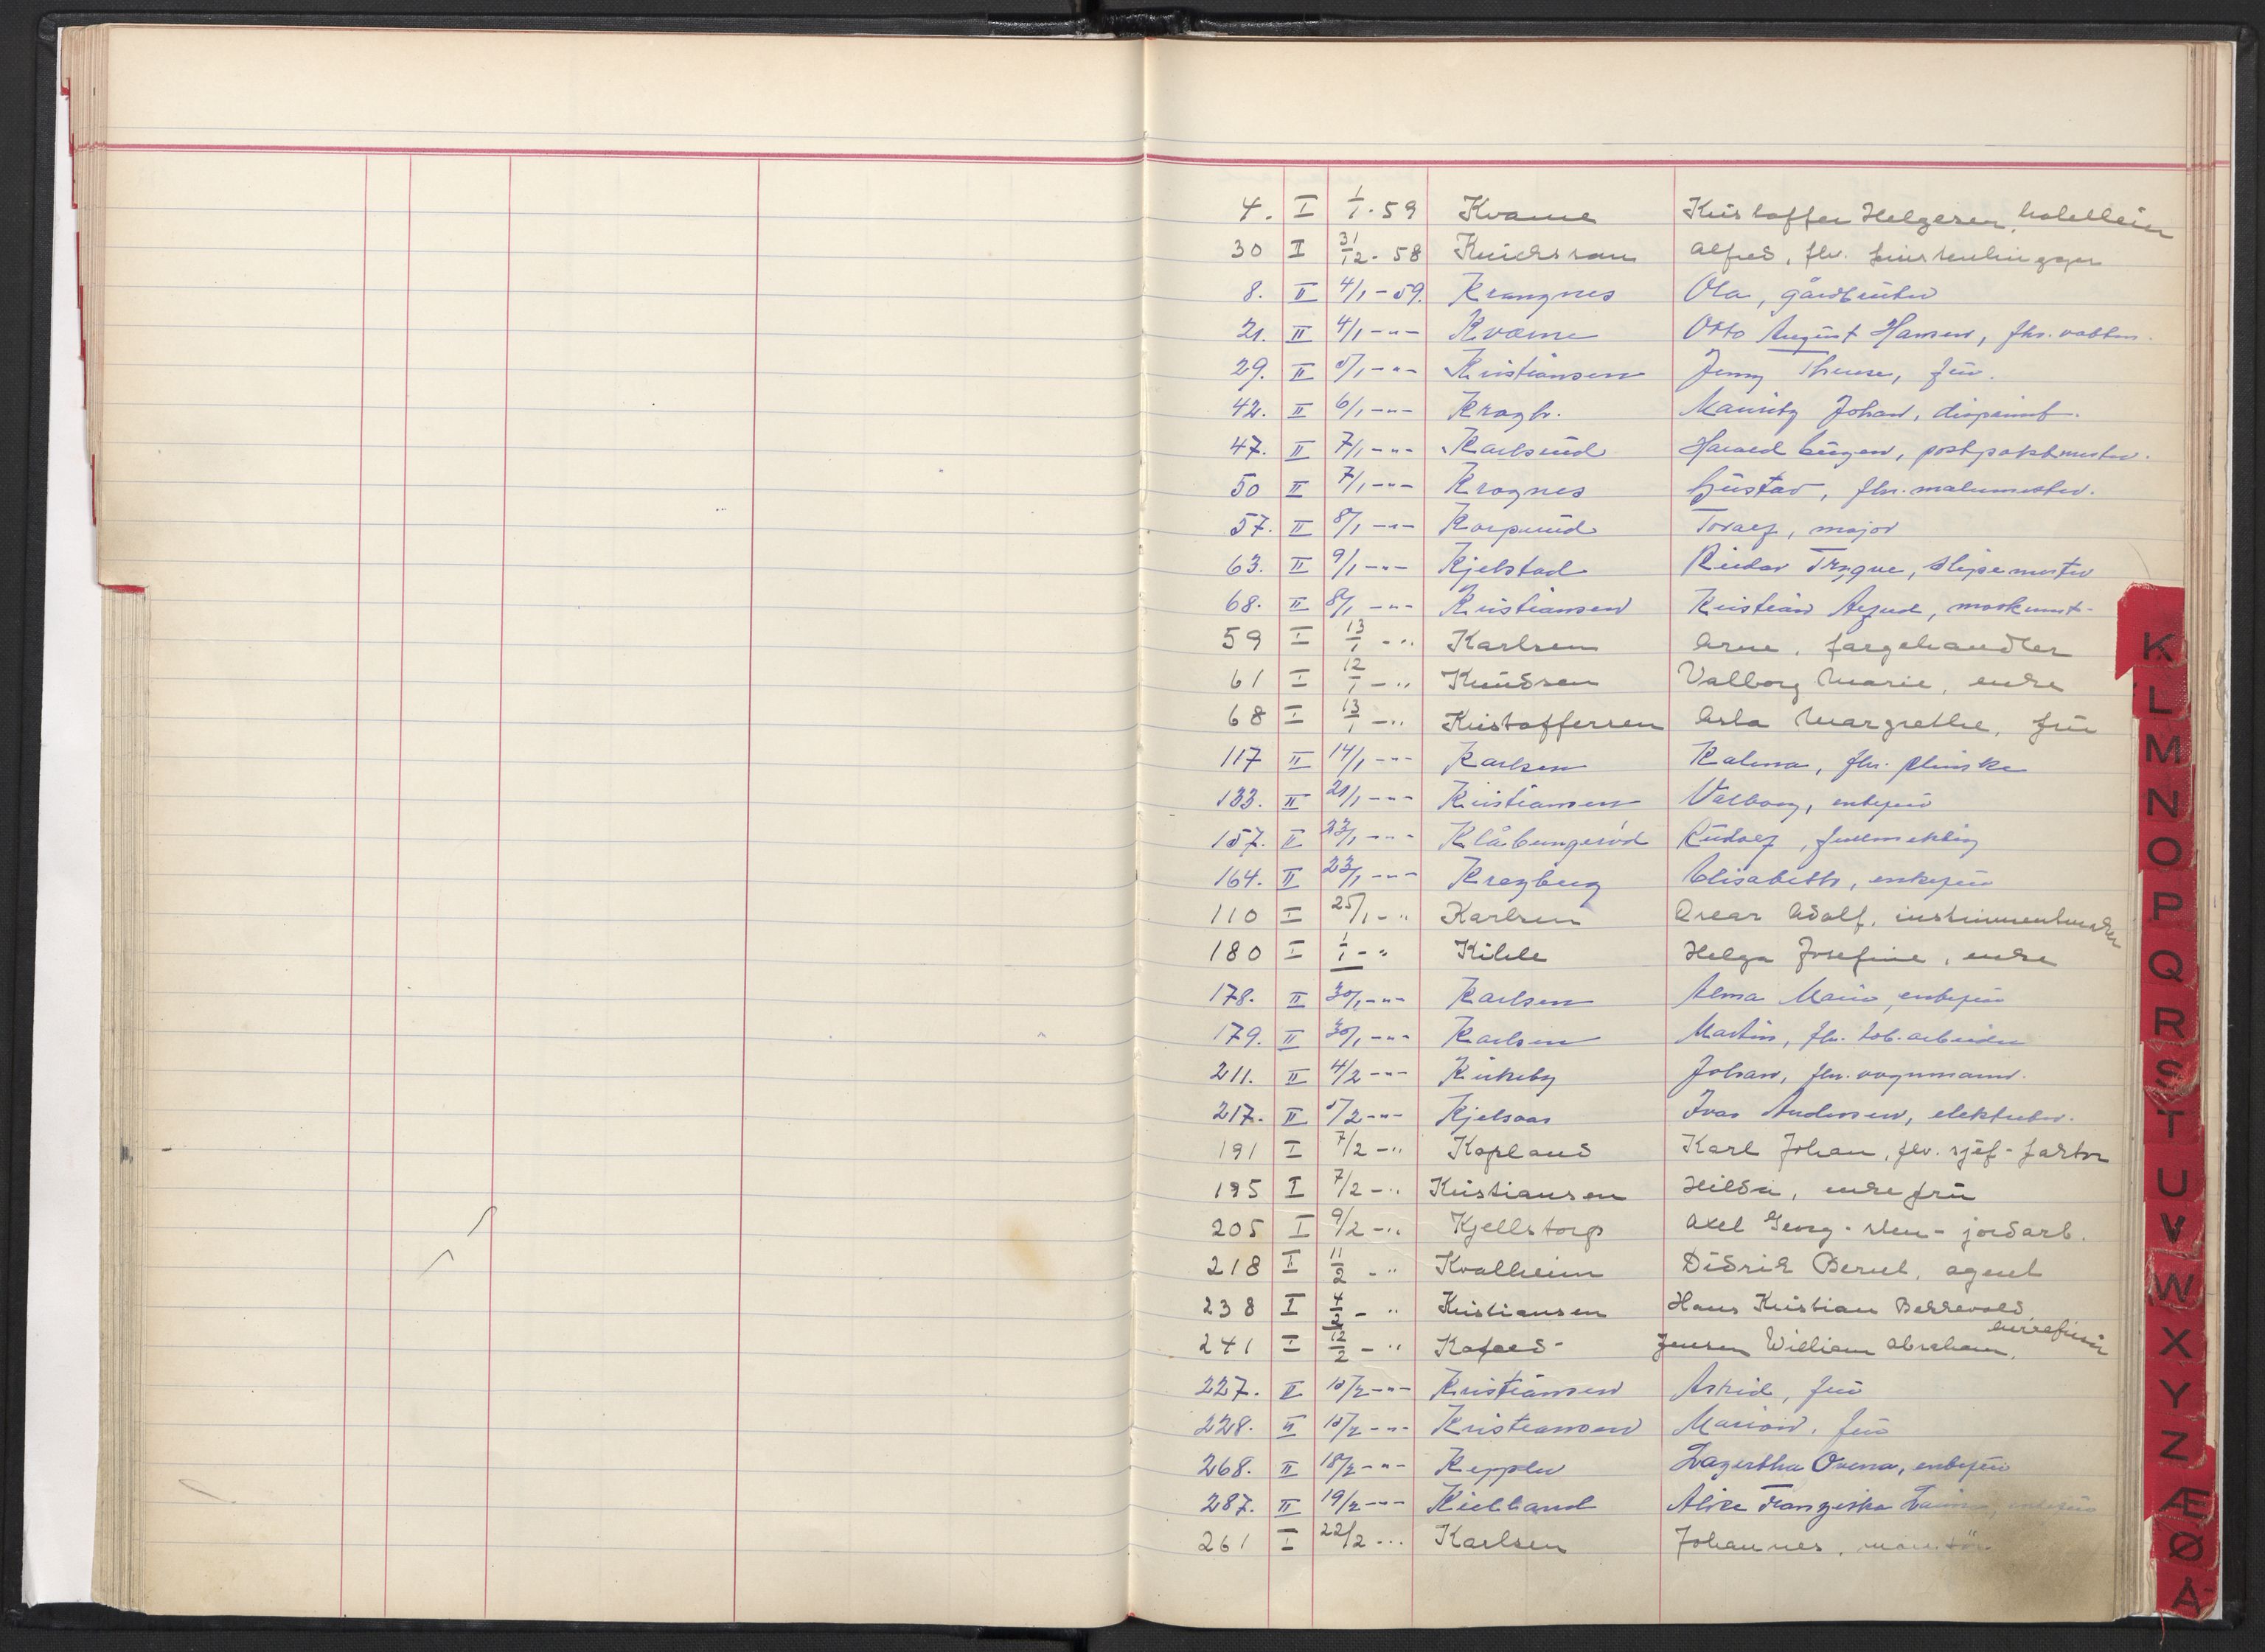 4. I 1/1 - 59 Kvame Kristoffer Helgesen, hotelleier
30 I 31/12 - 58 Alfred, fhv.
8. II 4/1 - 59. Krangnes Ola, gårdbruker
21. II 4/1 - " - Kværne Otto August Hansen, fhv.
29. II 5/1 - " - Kristiansen Jenny Therese, frue.
42. II 6/1 - " - Kragh. Mauritz Johan, disponent.
47. II 7/1 - " - Karlsrud Harald Eugen, postpakkmester.
50 II 7/1 - " - Krognes Gustav, fhv. malermester.
57. II 8/1 - " - Korpruud Toralf, major
63. II 9/1 - " - Kjelstad Reidar Trygve, slipemester
68. II 8/1 - " - Kristiansen Kristian
59 I 13/1 - " Karlsen Arne, fargehandler
61 I 12/1 - " Knudsen Valborg Marie, enke
68 I 13/1 - " Kristoffersen Asta Margrethe, fru
117 II 14/1 - " - Karlsen Kalma, fhv.
133. II 21/1 - " - Kristiansen Valborg, enkefru
157. II 23/1 - " - Klåbungerød Rudolf, fullmektig
164. II 23/1 - " - Kragberg Elisabeth, enkefru
110 I 25/1 - " Karlsen Oscar Adolf, instrumentmaker
180 I 1/1 - " Kihle Helga Josefine, enke
178. II 30/1 - " - Karlsen Alma Marie, enkefru
179. II 30/1 - " - Karlsen Martin, fhv. tob. arbeider
211. II 4/2 - " - Kirkeby Johan, fhv. vognmann.
217. II 5/2 - " - Kjelsaas Ivar Andersen, elektriker.
191 I 7/2 - " Kopland Karl Johan, fhv. sjef-faktor
195 I 7/2 - " Kristiansen Hilda, enkefru
205 I 9/2 - " Kjellstorp Axel Georg - sten - jordarb.
218 I 11/2 - " Kvalheim Didrik Bernt, agent
238 I 4/2 - " Kristiansen Hans Kristian Berrevold
241 I 12/2 - " Jensen William Abraham,
227. II 10/2 - " - Kristiansen Astrid, frue
228. II 10/2 - " - Kristiansen Marion, frue
268. II 18/2 - " - Keppler Lagertha Ovena, enkefru
287. II 19/2 - " - Kielland Alice Franziska
261 I 22/2 - " Karlsen Johannes, montør
K
L
M
N
O
P
Q
R
S
T
U
V
W
X
Y
Z
Æ
Ø
Å